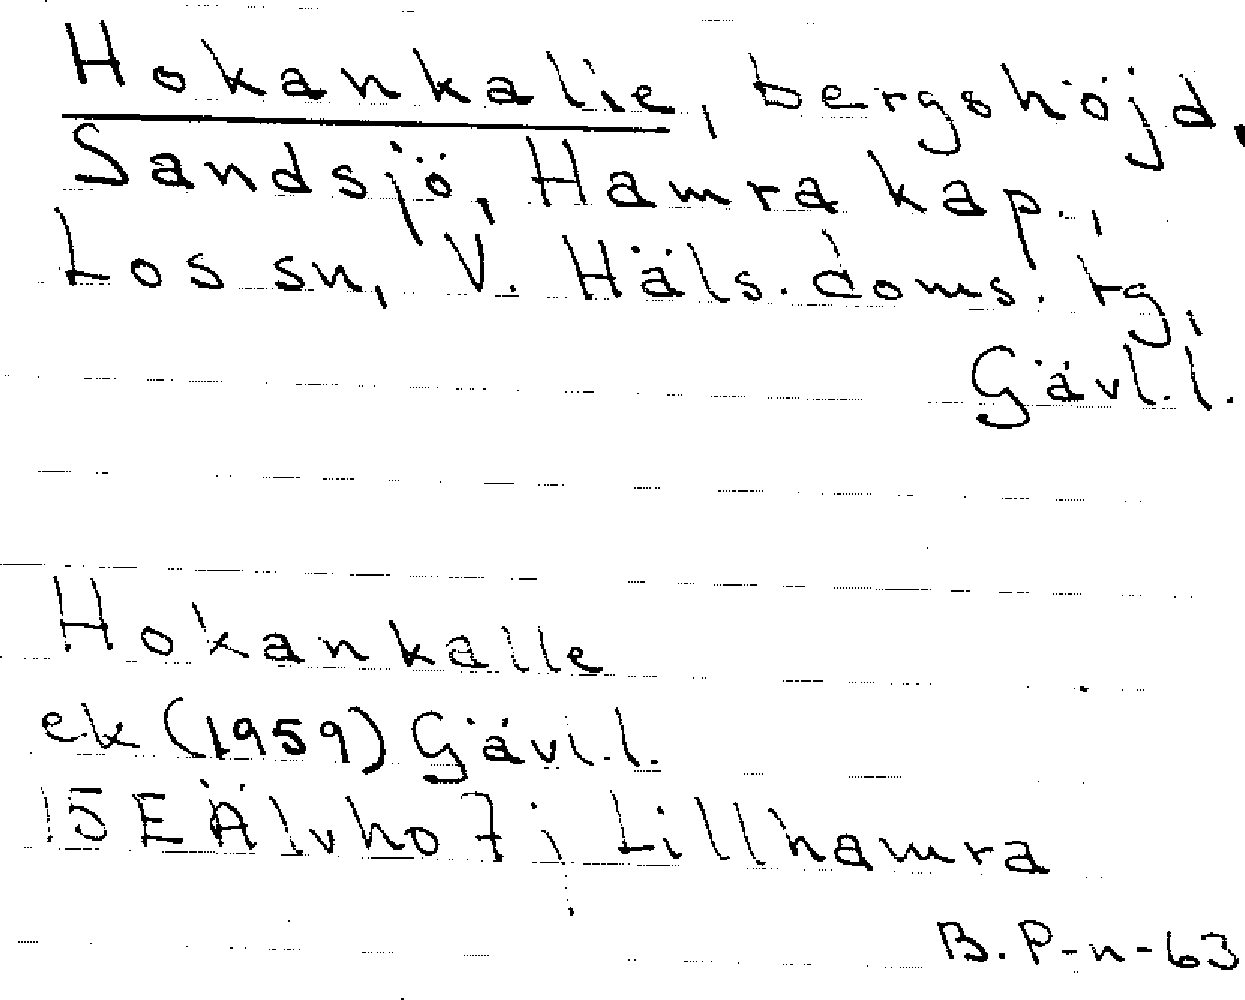 Hokankalie, bergshöjd,
Sandsjö, Hamra kap.,
Los sn, V. Häls. doms. tg,
Gävl.l.
Hokankalle
ek (1959) Gävl.l.
15E Älvho 7i Lillhamra
B. P-n-63